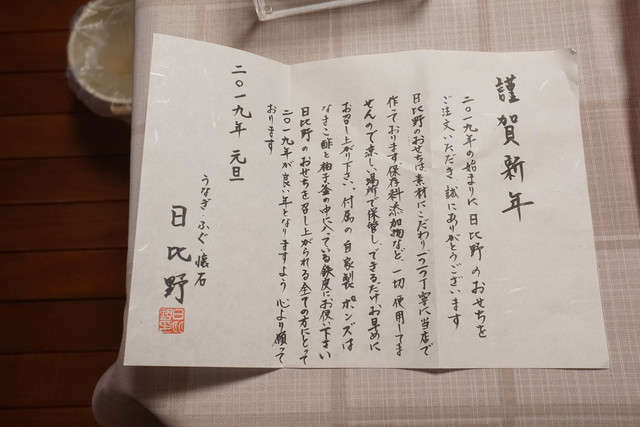 謹賀新年
二〇一九年の始まりに日比野のおせちを
ご注文いただき誠にありがとうございます
日比野のおせちは素材にこだわり一つ一つ丁寧に当店で
作っております保存料添加物など一切使用してま
せんので涼しい場所で保管し、できるだけお早めに
お召し上がり下さい、付属の自家製ポンズは
なまこ酢と柚子釜の中に入っている鉄皮にお使い下さい
日比野のおせちを召し上がられる全ての方にとって
二〇一九年が良い年となりますよう心より願って
おります
二〇一九年 元旦
うなぎ・ふぐ 懐石
日比野